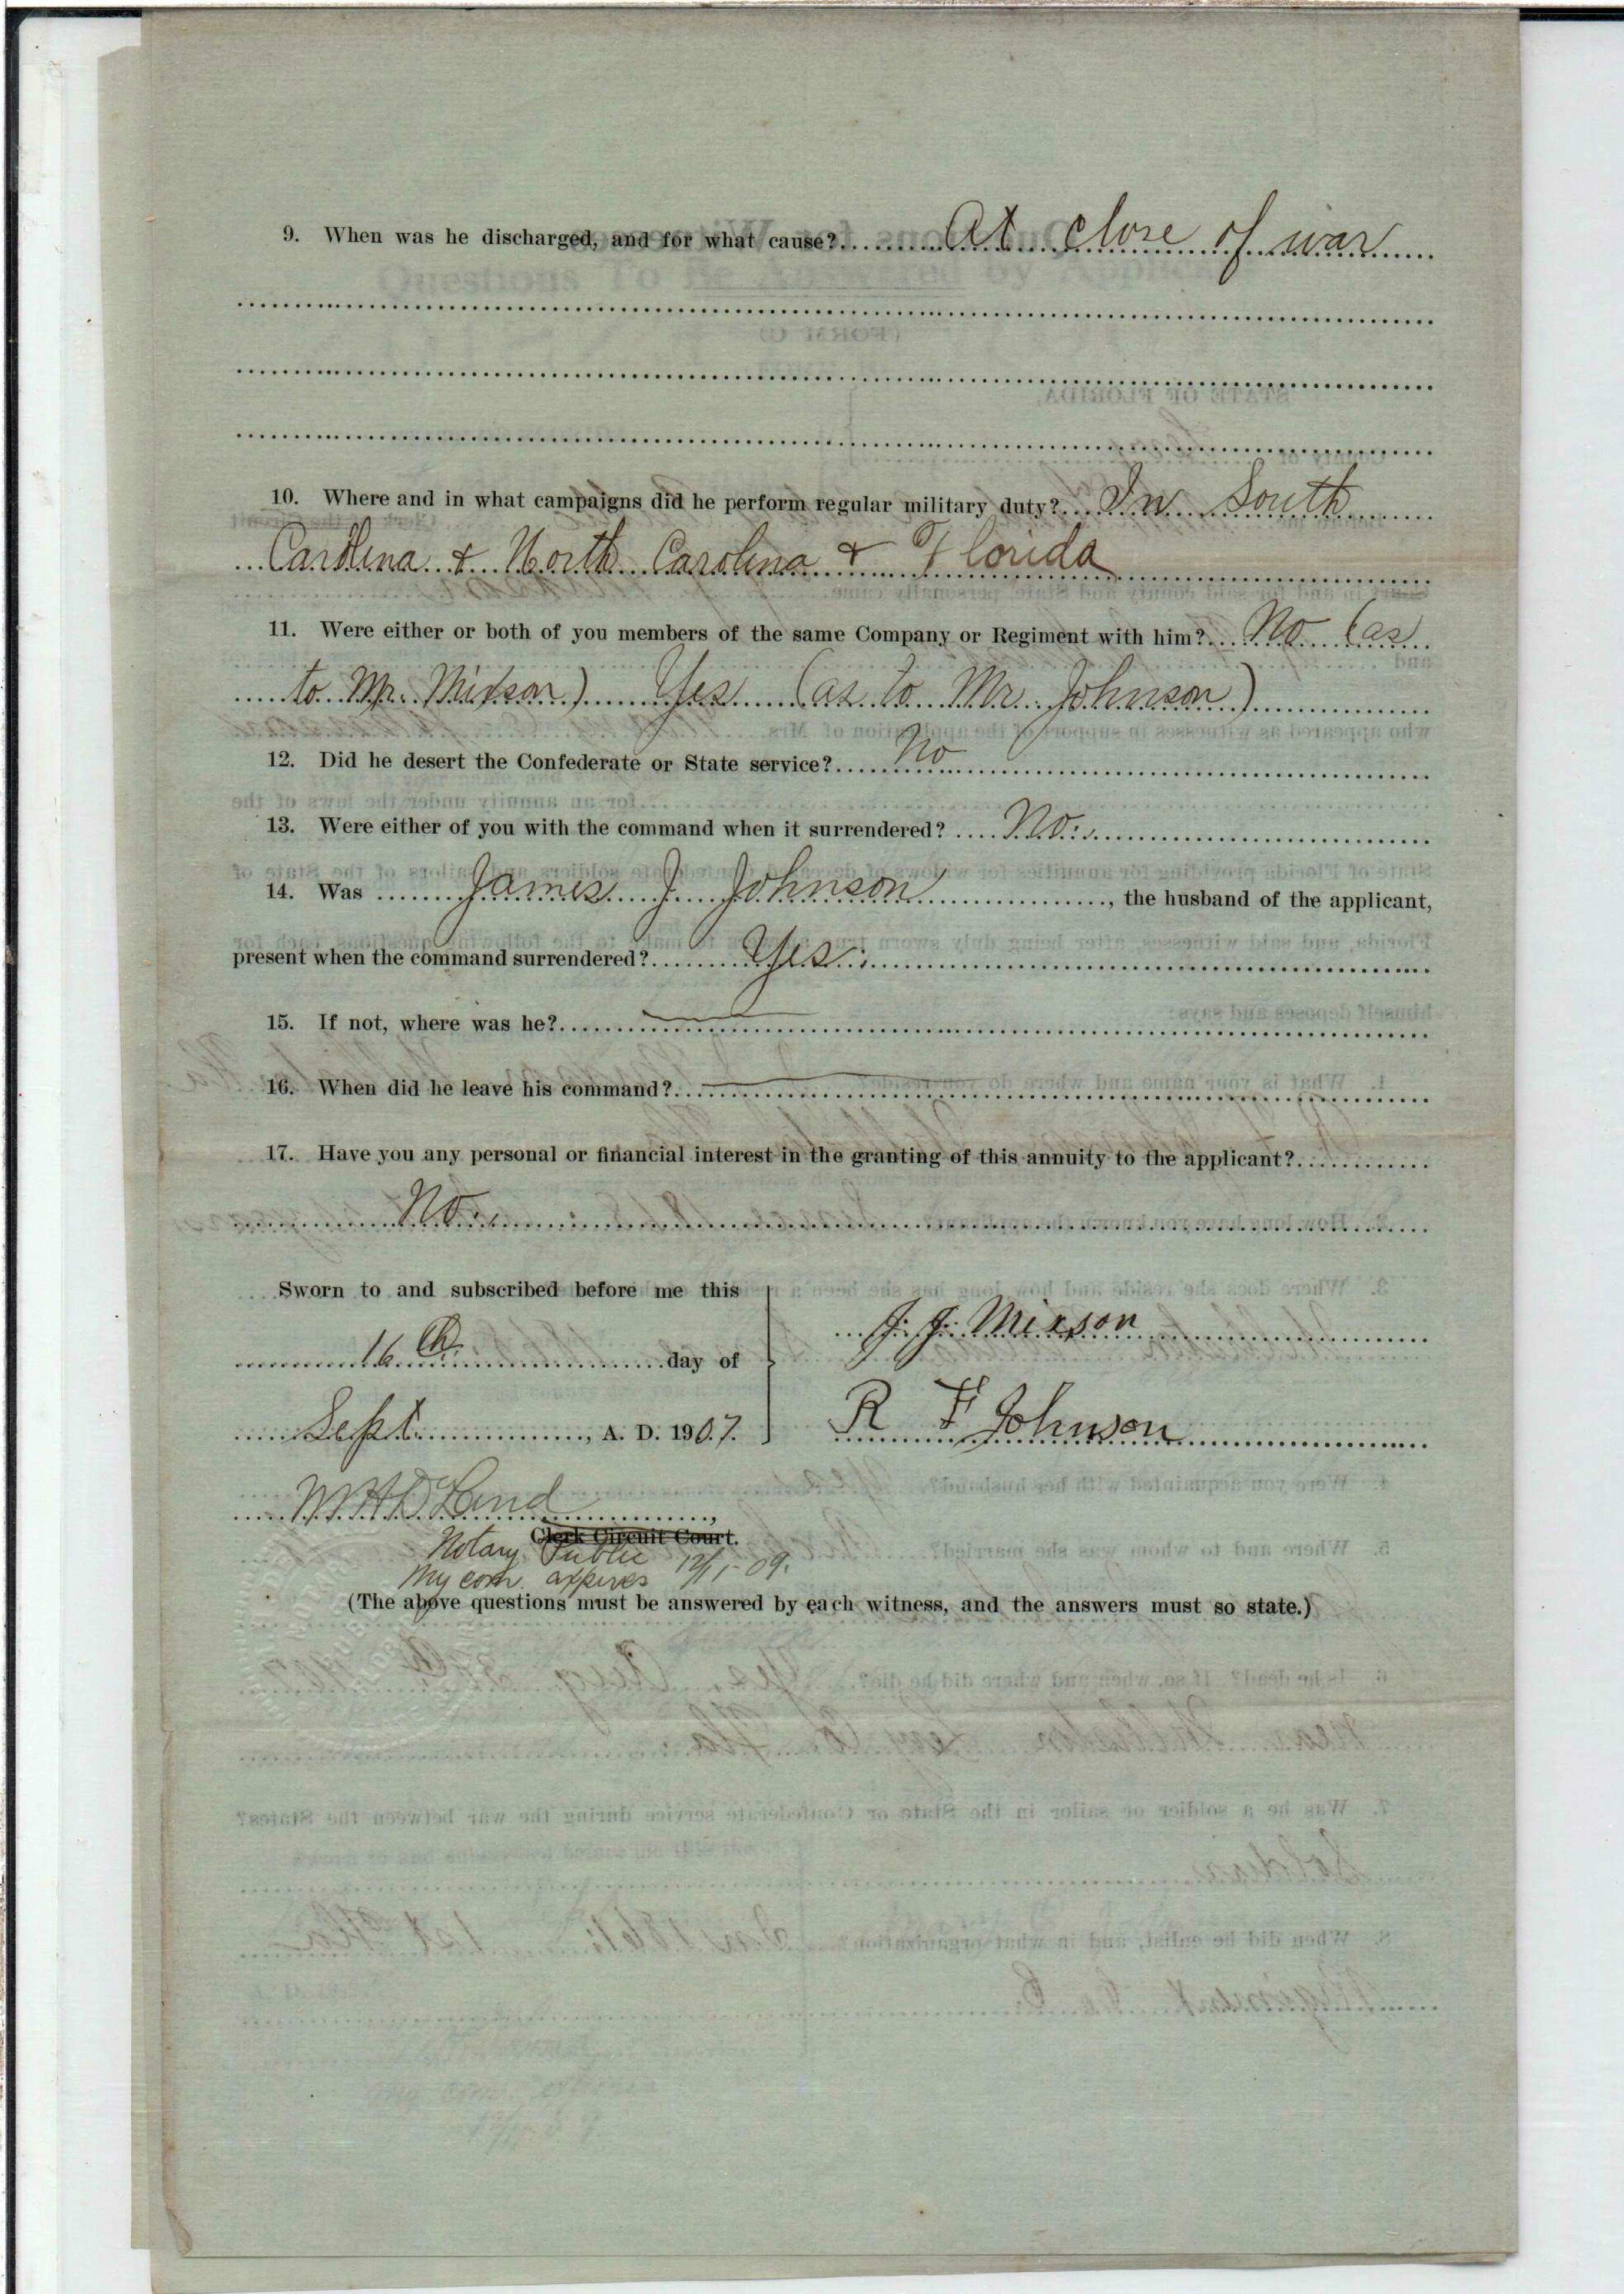 9. When was he discharged, and for what cause? At close of war
10. Where and in what campaigns did he perform regular military duty? In South
Carolina & North Carolina & Florida
11. Were either or both of you members of the same Company or Regiment with him? No (as
to Mr. Mixson) Yes (as to Mr. Johnson)
12. Did he desert the Confederate or State service? No
13. Were either of you with the command when it surrendered? No.
14. Was James J. Johnson, the husband of the applicant,
present when the command surrendered? Yes.
15. If not, where was he?
16. When did he leave his command?
17. Have you any personal or financial interest in the granting of this annuity to the applicant?
No.
Sworn to and subscribed before me this
16th day of
Sept, A. D. 1907.
J. J. Mixson
R F Johnson
Clerk Circuit Court.
Notary Public
My com expires 12/1-09.
(The above questions must be answered by each witness, and the answers must so state.)